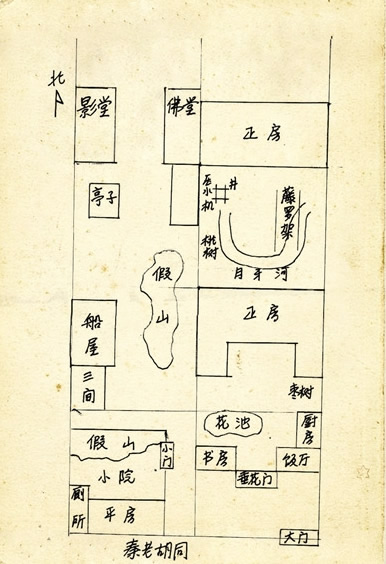 北
影堂
佛堂
正房
亭子
压水机
井
藤罗架
桃树
月牙河
假山
正房
船屋
三间
枣树
花池
厨房
假山
小门
小院
书房
饭厅
垂花门
厕所
平房
大门
秦老胡同